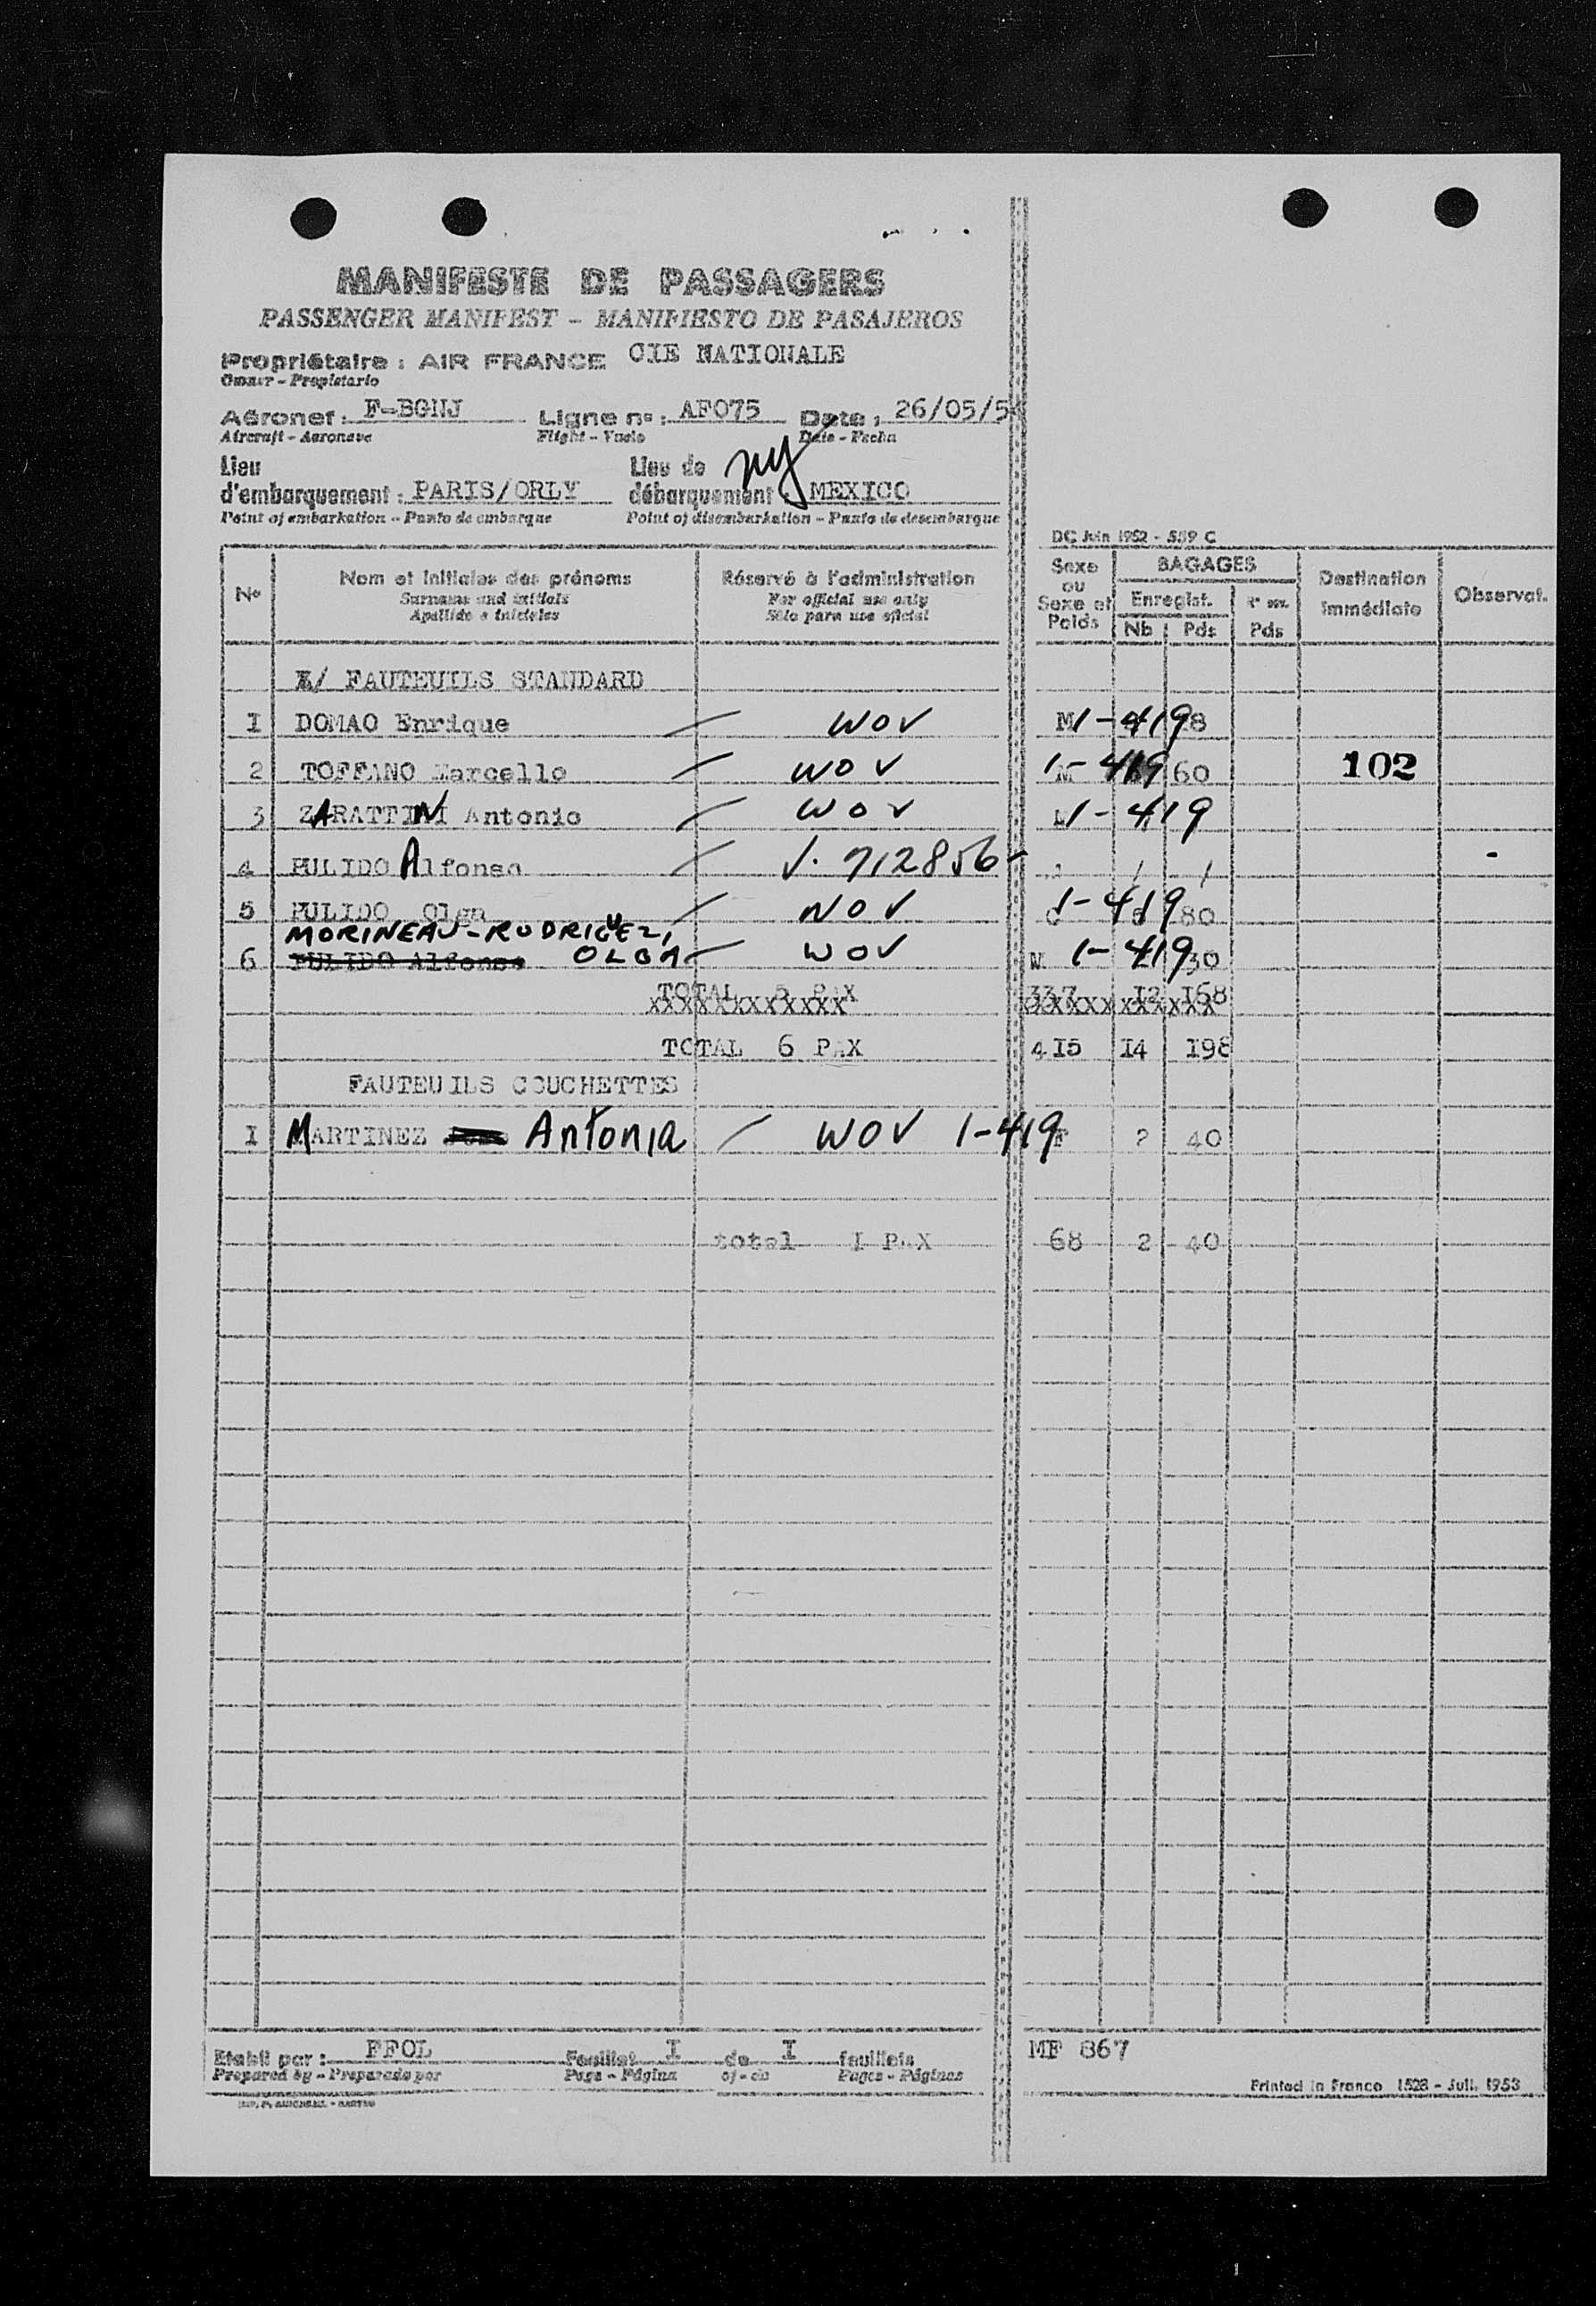 MANIFESTE DE PASSAGERS
PASSENGER MANIFEST - MANIFIESTO DE PASAJEROS
Propriétaire : AIR FRANCE CIE NATIONALE
Owner - Propietario
Aéronef : F-BGNJ Ligne n° : AF075 Date : 26/05/5
Aircraft - Aeronave Flight - Vuelo Date - Fecha
Lieu Lieu de ny
d'embarquement : PARIS/ORLY débarquement : MEXICO
Point of embarkation - Punto de embarque Point of disembarkation - Punto de desembarque
DC Juin 1952 - 559 C
N° Nom et initiales des prénoms Réservé à l'administration Sexe ou Sexe et Poids BAGAGES Destination immédiate Observat.
Surnames and initials For official use only Enregist.
Apellido e iniciales Sólo para uso oficial Nb Pds Pds
X/ FAUTEUILS STANDARD
I DOMAO Enrique / WOV M 1-419 8
2 TOFFANO Marcello / WOV 1-419 60 102
3 ZARATTINI Antonio / WOV 1-419
4 PULIDO Alfonso / V. 712856 -
5 PULIDO Olga / NOV 1-419 80
MORINEAU-RODRIGUEZ,
6 PULIDO Alfonso OLGA / WOV M 1-419 30
TOTAL 5 PAX 337 I2 I68
XXXXXXXXXXXX XXXXXXXXXXXX
TOTAL 6 PAX 4I5 I4 I98
FAUTEUILS COUCHETTES
I MARTINEZ Antonia / WOV 1-419 F 2 40
total I PAX 68 2 40
Etabli par : FFOL Feuillet I de I feuillets MF 867
Prepared by - Preparado por Page - Página of - de Pages - Páginas
Printed in France 1528 - Juil. 1953